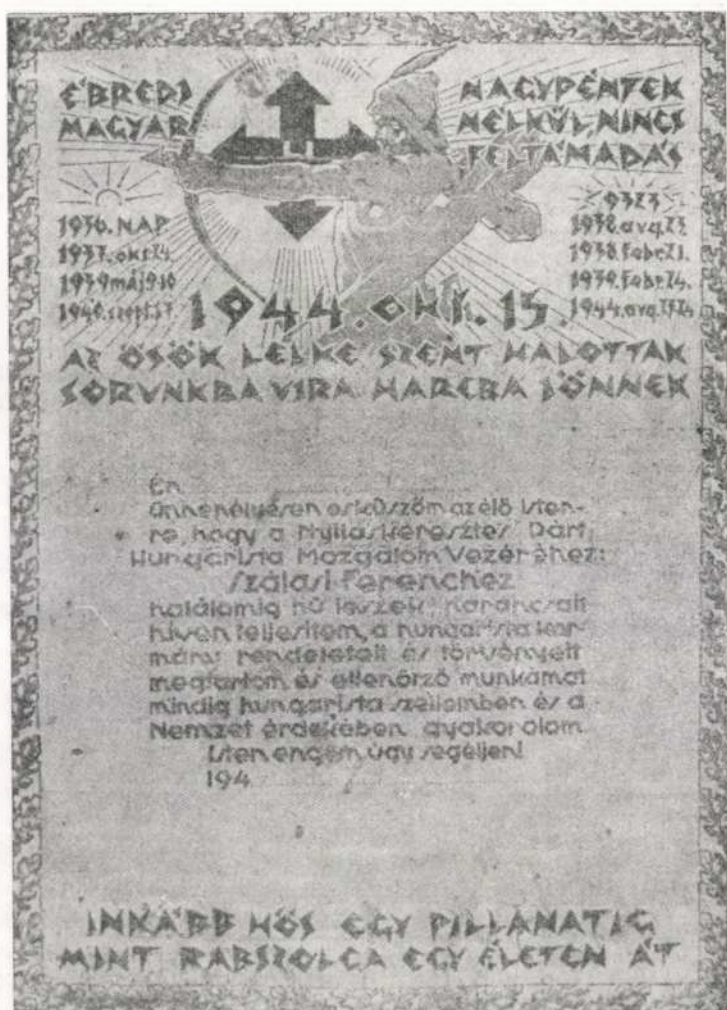 ÉBREDJ
MAGYAR
NAGYPÉNTEK
NÉLKÜL NINCS
FELTÁMADÁS
1936. NAP
1937. okt. 24.
1939 máj 9-10
1940. szept.
1938. aug. 27.
1938. febr. 21.
1939. febr. 24.
1944. aug.
1944. OKT. 15.
AZ ŐSÖK LELKE SZENT HALOTTAK
SORUNKBA HARCBA JÖNNEK
Én
ünnepélyesen esküszöm az élő Isten-
re, hogy a Nyilaskeresztes Párt,
Hungarista Mozgalom Vezéréhez:
Szálasi Ferenchez
halálomig hű leszek, parancsait
híven teljesítem, a hungarista kor-
mány rendeleteit és törvényeit
megtartom és ellenőrző munkámat
mindig hungarista szellemben és a
Nemzet érdekében gyakorolom.
Isten engem úgy segéljen!
194
INKÁBB HŐS EGY PILLANATIG
MINT RABSZOLGA EGY ÉLETEN ÁT